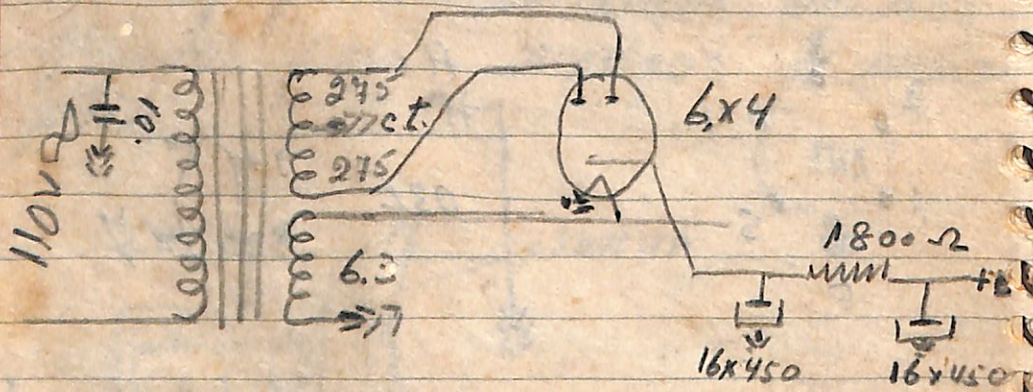 110 V
.01
275
ct.
275
6.3
6X4
1800 Ω
+B
16X450
16X450